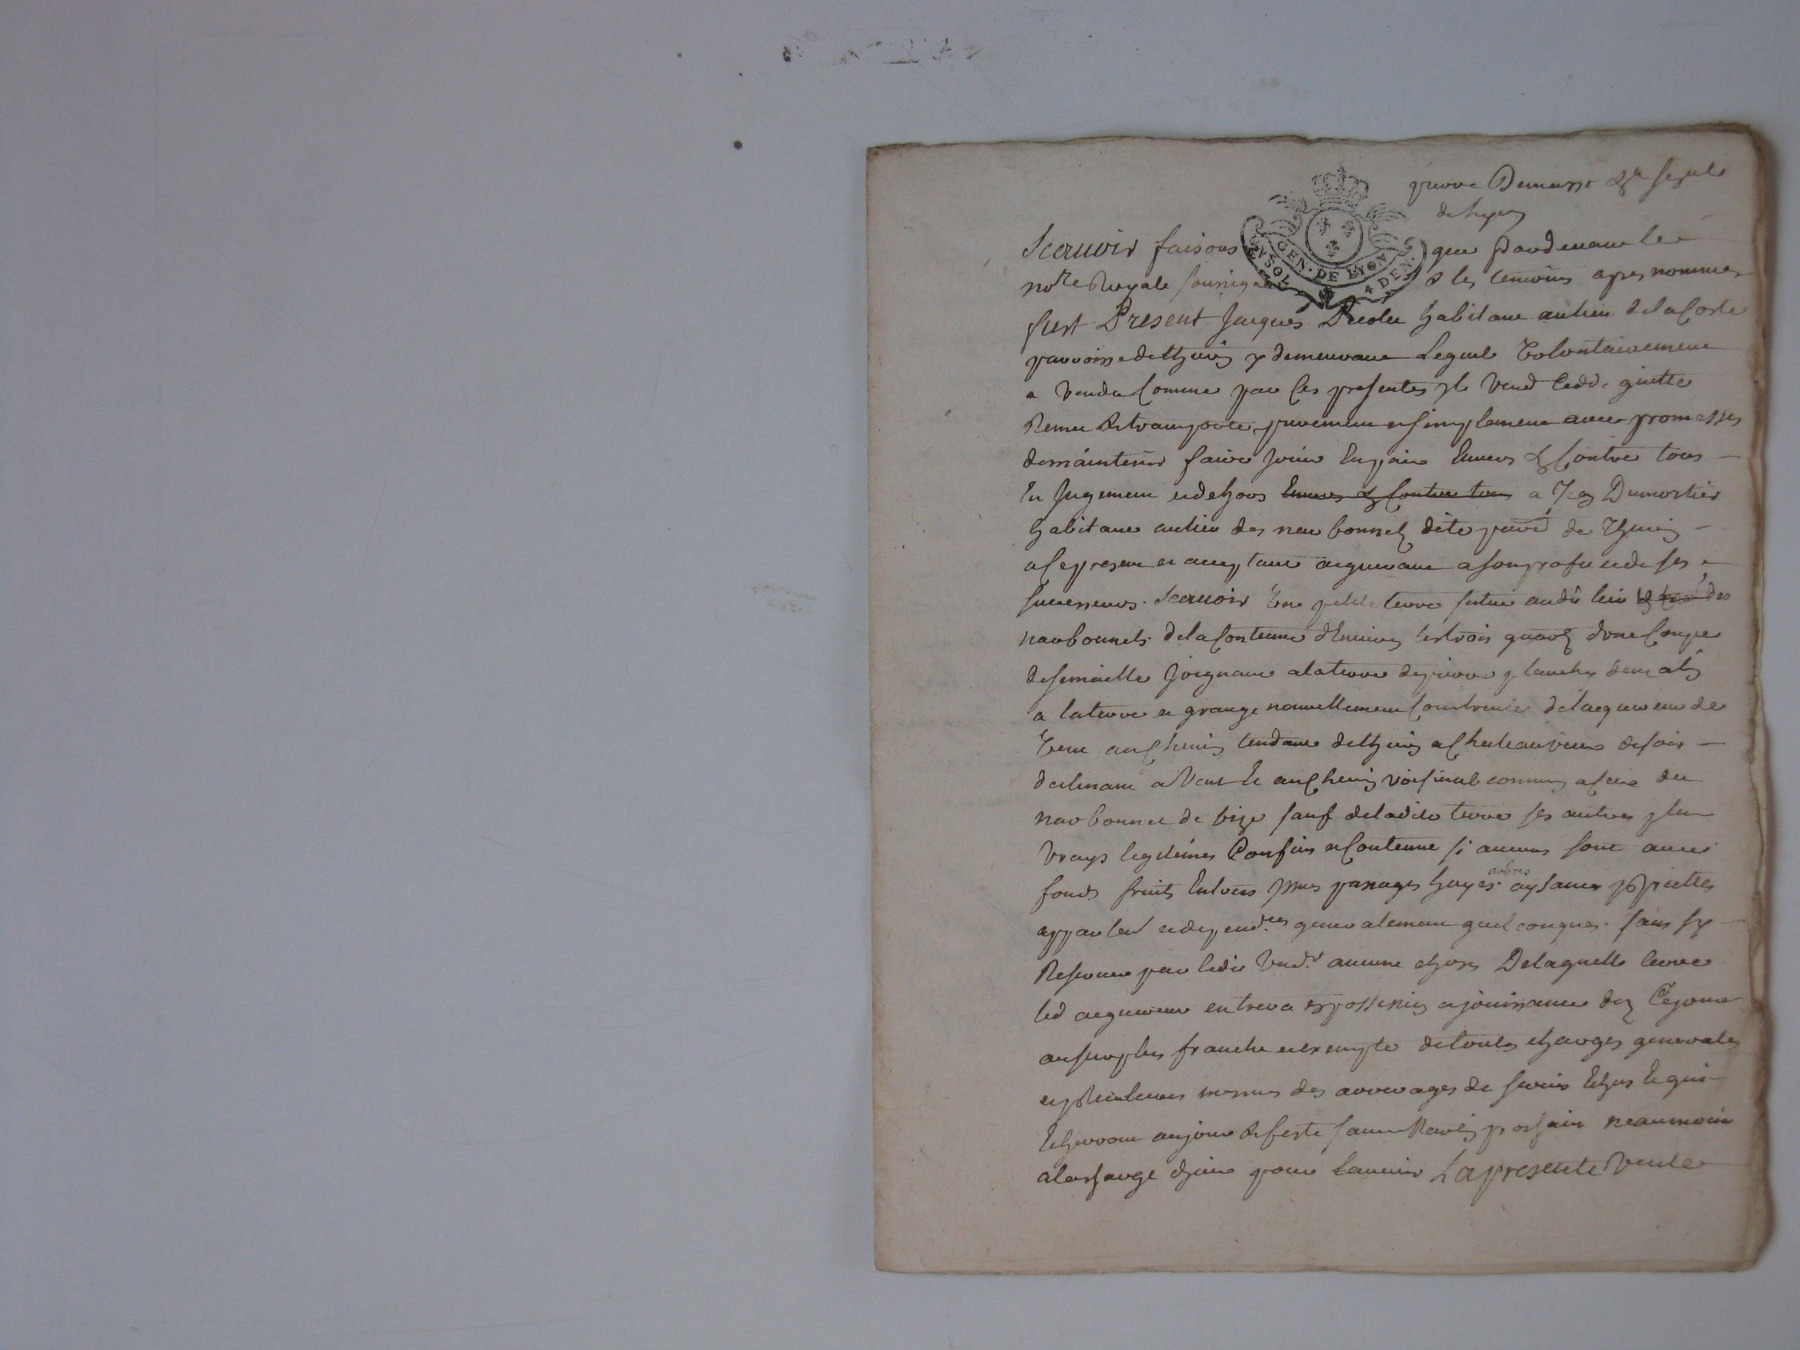 de
Scavoir faisons que pardevant le
GEN. DE LYON
UN SOL 4 DEN.
no.re Royale soussigné & les temoins apres nommes
fust Present Jacques habitant au lieu de la Coste
parroisse de thurin y demeurant Lequel Volontairement
a vendu comme par ces presentes yl vend cedde quitte
Remet & transporte purement et simplement avec promesses
de maintenir faire jouir En paix Envers & Contre tous
En Jugement et dehors Envers & Contre tous a Dumortier
habitant au lieu des narbonnet dite parr. de Thurin
a ce present et acceptant acquereur a son profit et de ses
successeurs. Scavoir Une petite terre scitué audit lieu des
narbonnets de la Contenue d'Environ trois quartz d'une Coupe
de semaille Joignant a la terre de pierre planche matin
a la terre et grange nouvellement Construite de l'acquereur de
Vent au chemin tendant de thurin a Chateauvieux de soir
declinant a Vent Et au chemin voisinal commun a ceux du
narbonnet de bize sauf de ladite terre ses autres plus
vrays legitimes Confins et Contenue si aucuns sont avec
fonds fruits Entrées passages hayes arbres aysances proprietes
appar.ces et depend.ces generalement quelconques. sans sy
Reserver par ledit Vend.r aucune chose De laquelle terre
led acquereur entrera en possession et jouissance dez Cejourd'hui
au surplus franche et exempte de toutes charges generales
et particulieres mesmes des arrerages de servis Echus Et qui
Echerront au jour & feste saint Martin prochain neanmoins
a la charge d'iceux pour l'avenir La presente Vente